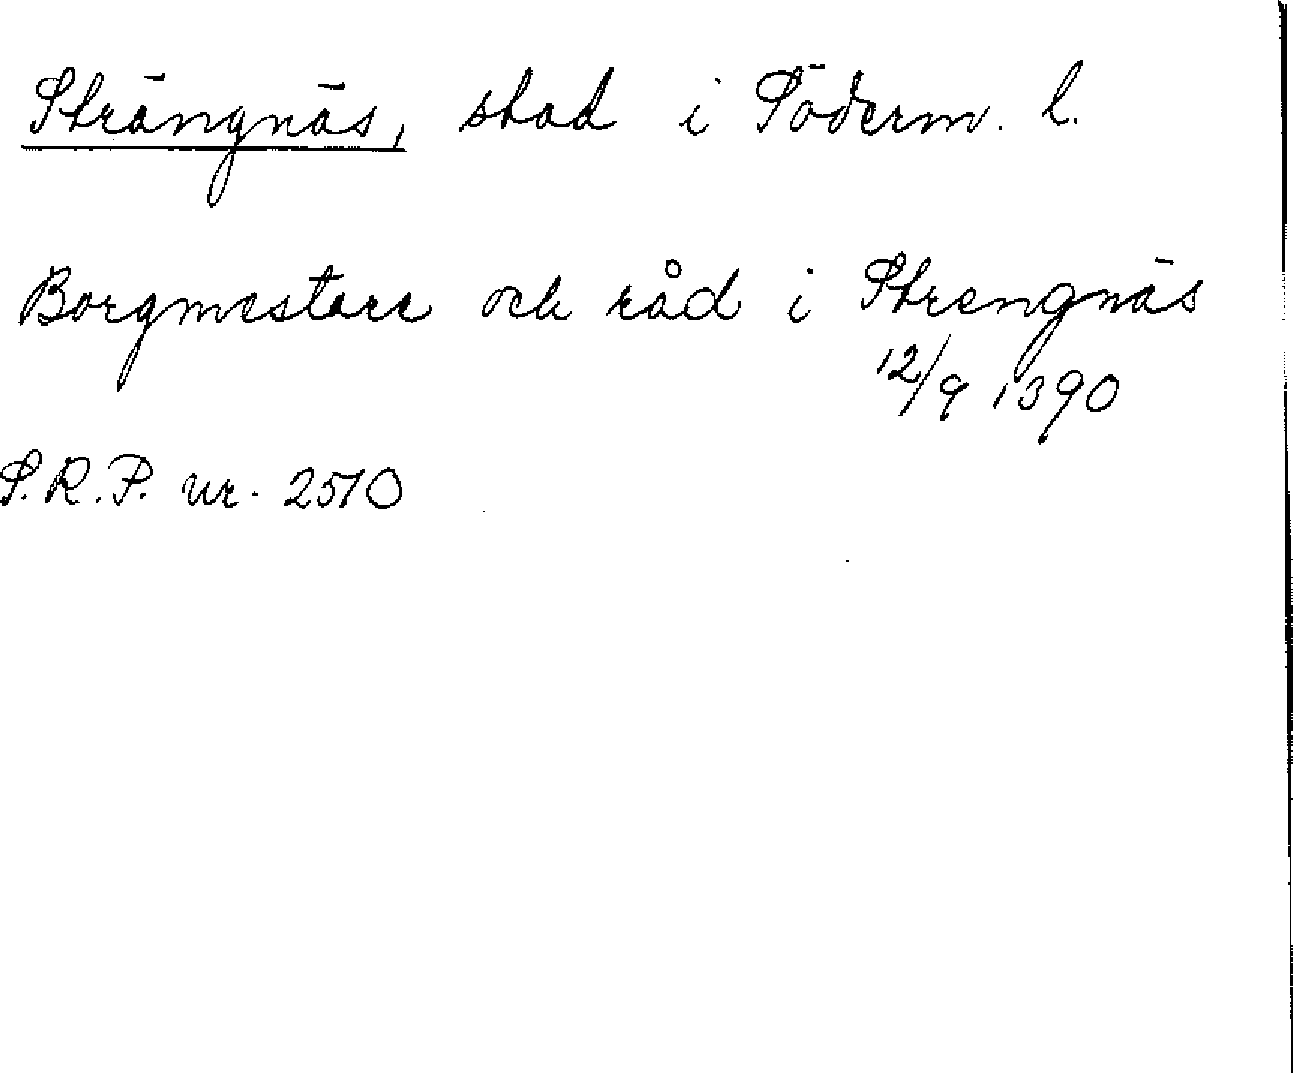 Strängnäs, stad i Söderm. l.
Borgmestare och råd i Strengnäs
12/9 1390
S.R.P. nr. 2510